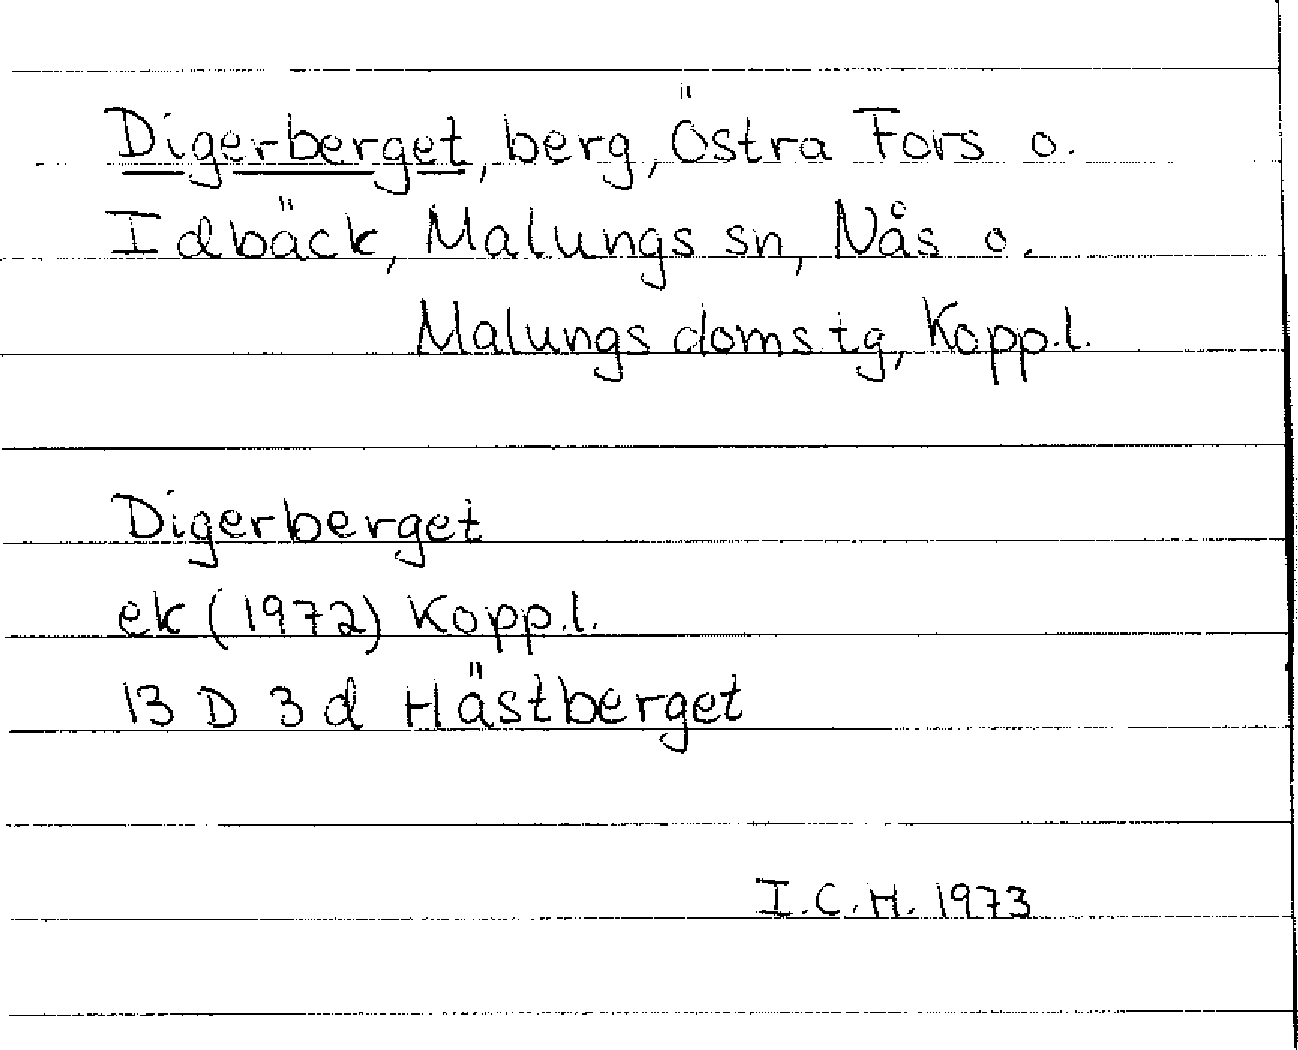 Digerberget, berg, Östra Fors o.
Idbäck, Malungs sn, Nås o.
Malungs domstg, Kopp.l.
Digerberget
ek (1972) Kopp.l.
13 D 3 d Hästberget
I.C.H. 1973